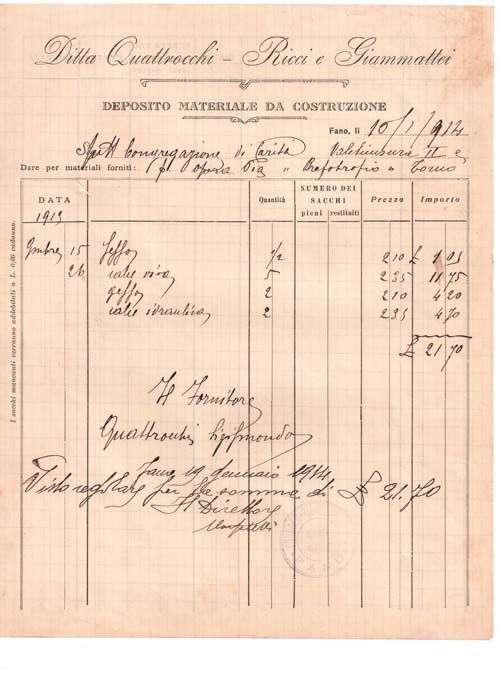 Ditta Quattrocchi - Ricci e Giammattei
DEPOSITO MATERIALE DA COSTRUZIONE
Fano, li 10/1/1914
Spett Congregazione di Carità
Dare per materiali forniti: Opera Pia " Brefotrofio "
DATA Quantità NUMERO DEI SACCHI pieni restituiti Prezzo Importo
1913
Gesso 1/2 210 £ 1 05
26 calce viva 5 235 11 75
gesso 2 210 4 20
calce idraulica 2 235 4 70
£ 21 70
Il Fornitore
Quattrocchi Sigismondo
Fano 19 gennaio 1914
Visto regolare per la somma di £ 21.70
Il Direttore
I sacchi mancanti verranno addebitati a L. 0,60 cadauno.